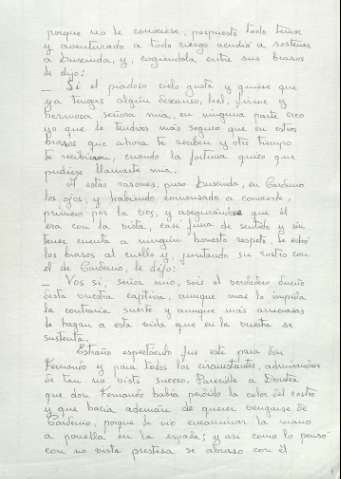 porque no le conociese, pospuesto todo temor
y aventurado a todo riesgo acudió a sostener
a Luscinda, y, cogiéndola entre sus brazos
le dijo:
_ Si el piadoso cielo gusta y quiere que
ya tengas algún descanso, leal, firme y
hermosa señora mía, en ninguna parte creo
yo que le tendrás más seguro que en estos
brazos que ahora te reciben y otro tiempo
te recibieron, cuando la fortuna quiso que
pudiese llamarte mía.
A estas razones, puso Luscinda, en Cardenio
los ojos, y habiendo comenzado a conocerle,
primero por la voz, y asegurándose que él
era con la vista, casi fuera de sentido y sin
tener cuenta a ningún honesto respeto, le echó
los brazos al cuello y, juntando su rostro con
el de Cardenio, le dijo:
_ Vos sí, señor mío, sois el verdadero dueño
desta vuestra captiva, aunque más lo impida
la contraria suerte y aunque más amenazas
le hagan a esta vida que en la vuestra se
sustenta.
Estraño espectáculo fue este para don
Fernando y para todos los circunstantes, admirándose
de tan no visto suceso. Parecióle a Dorotea
que don Fernando había perdido la color del rostro
y que hacía ademán de querer vengarse de
Cardenio, porque le vio encaminar la mano
a ponella en la espada; y así como lo pensó
con no vista presteza se abrazó con él